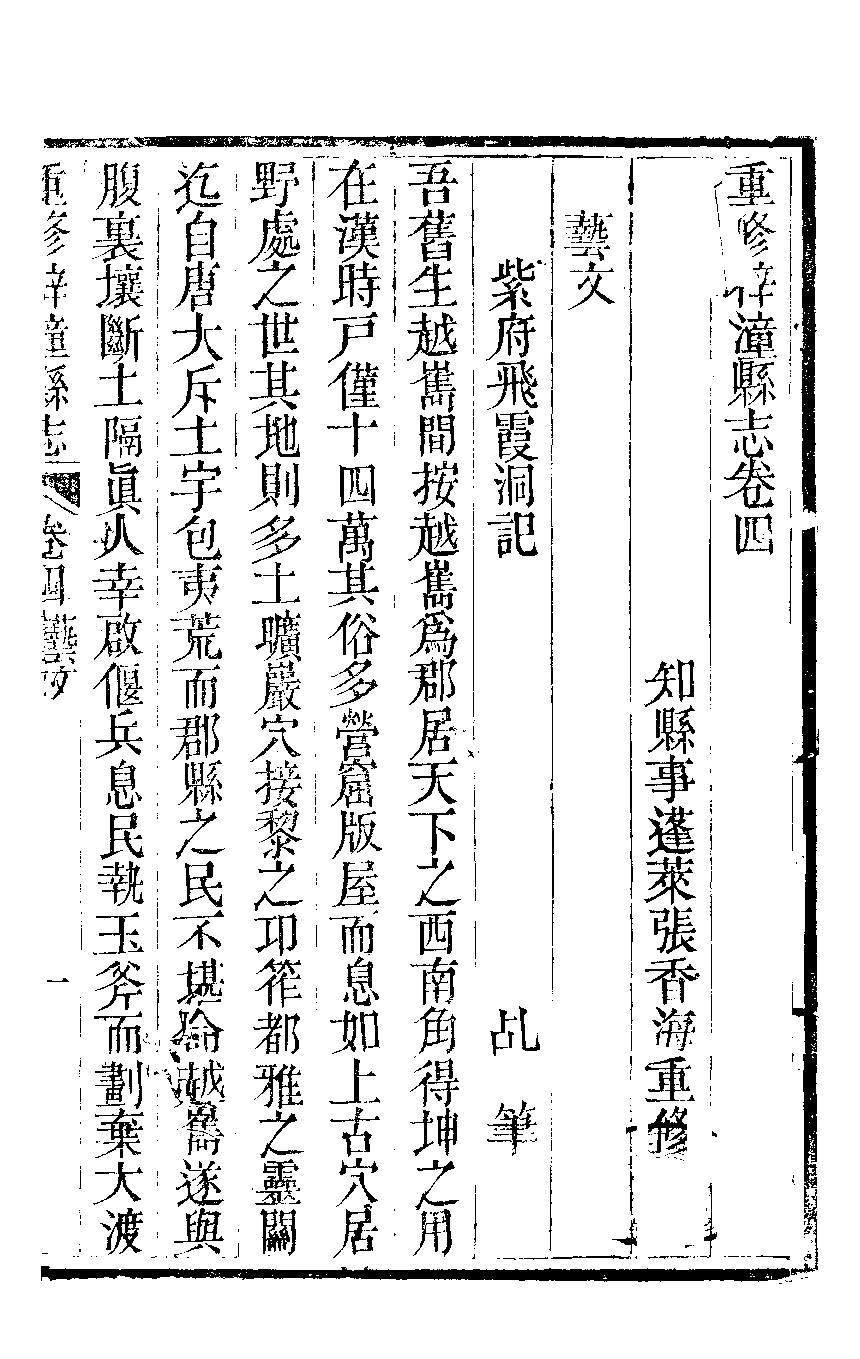 重修梓潼縣志卷四
知縣事蓬萊張香海重修
藝文
紫府飛霞洞記 乩筆
吾舊生越嶲間按越嶲爲郡居天下之西南角得坤之用
在漢時戸僅十四萬其俗多營窟版屋而息如上古穴居
野處之世其地則多土曠巖穴接黎之邛筰都雅之靈關
迄自唐大斥土宇包夷荒而郡縣之民不堪 越嶲遂與
腹裏壤斷土隔眞人幸啟偃兵息民執玉斧而劃棄大渡
重修梓潼縣志 卷四藝文 一